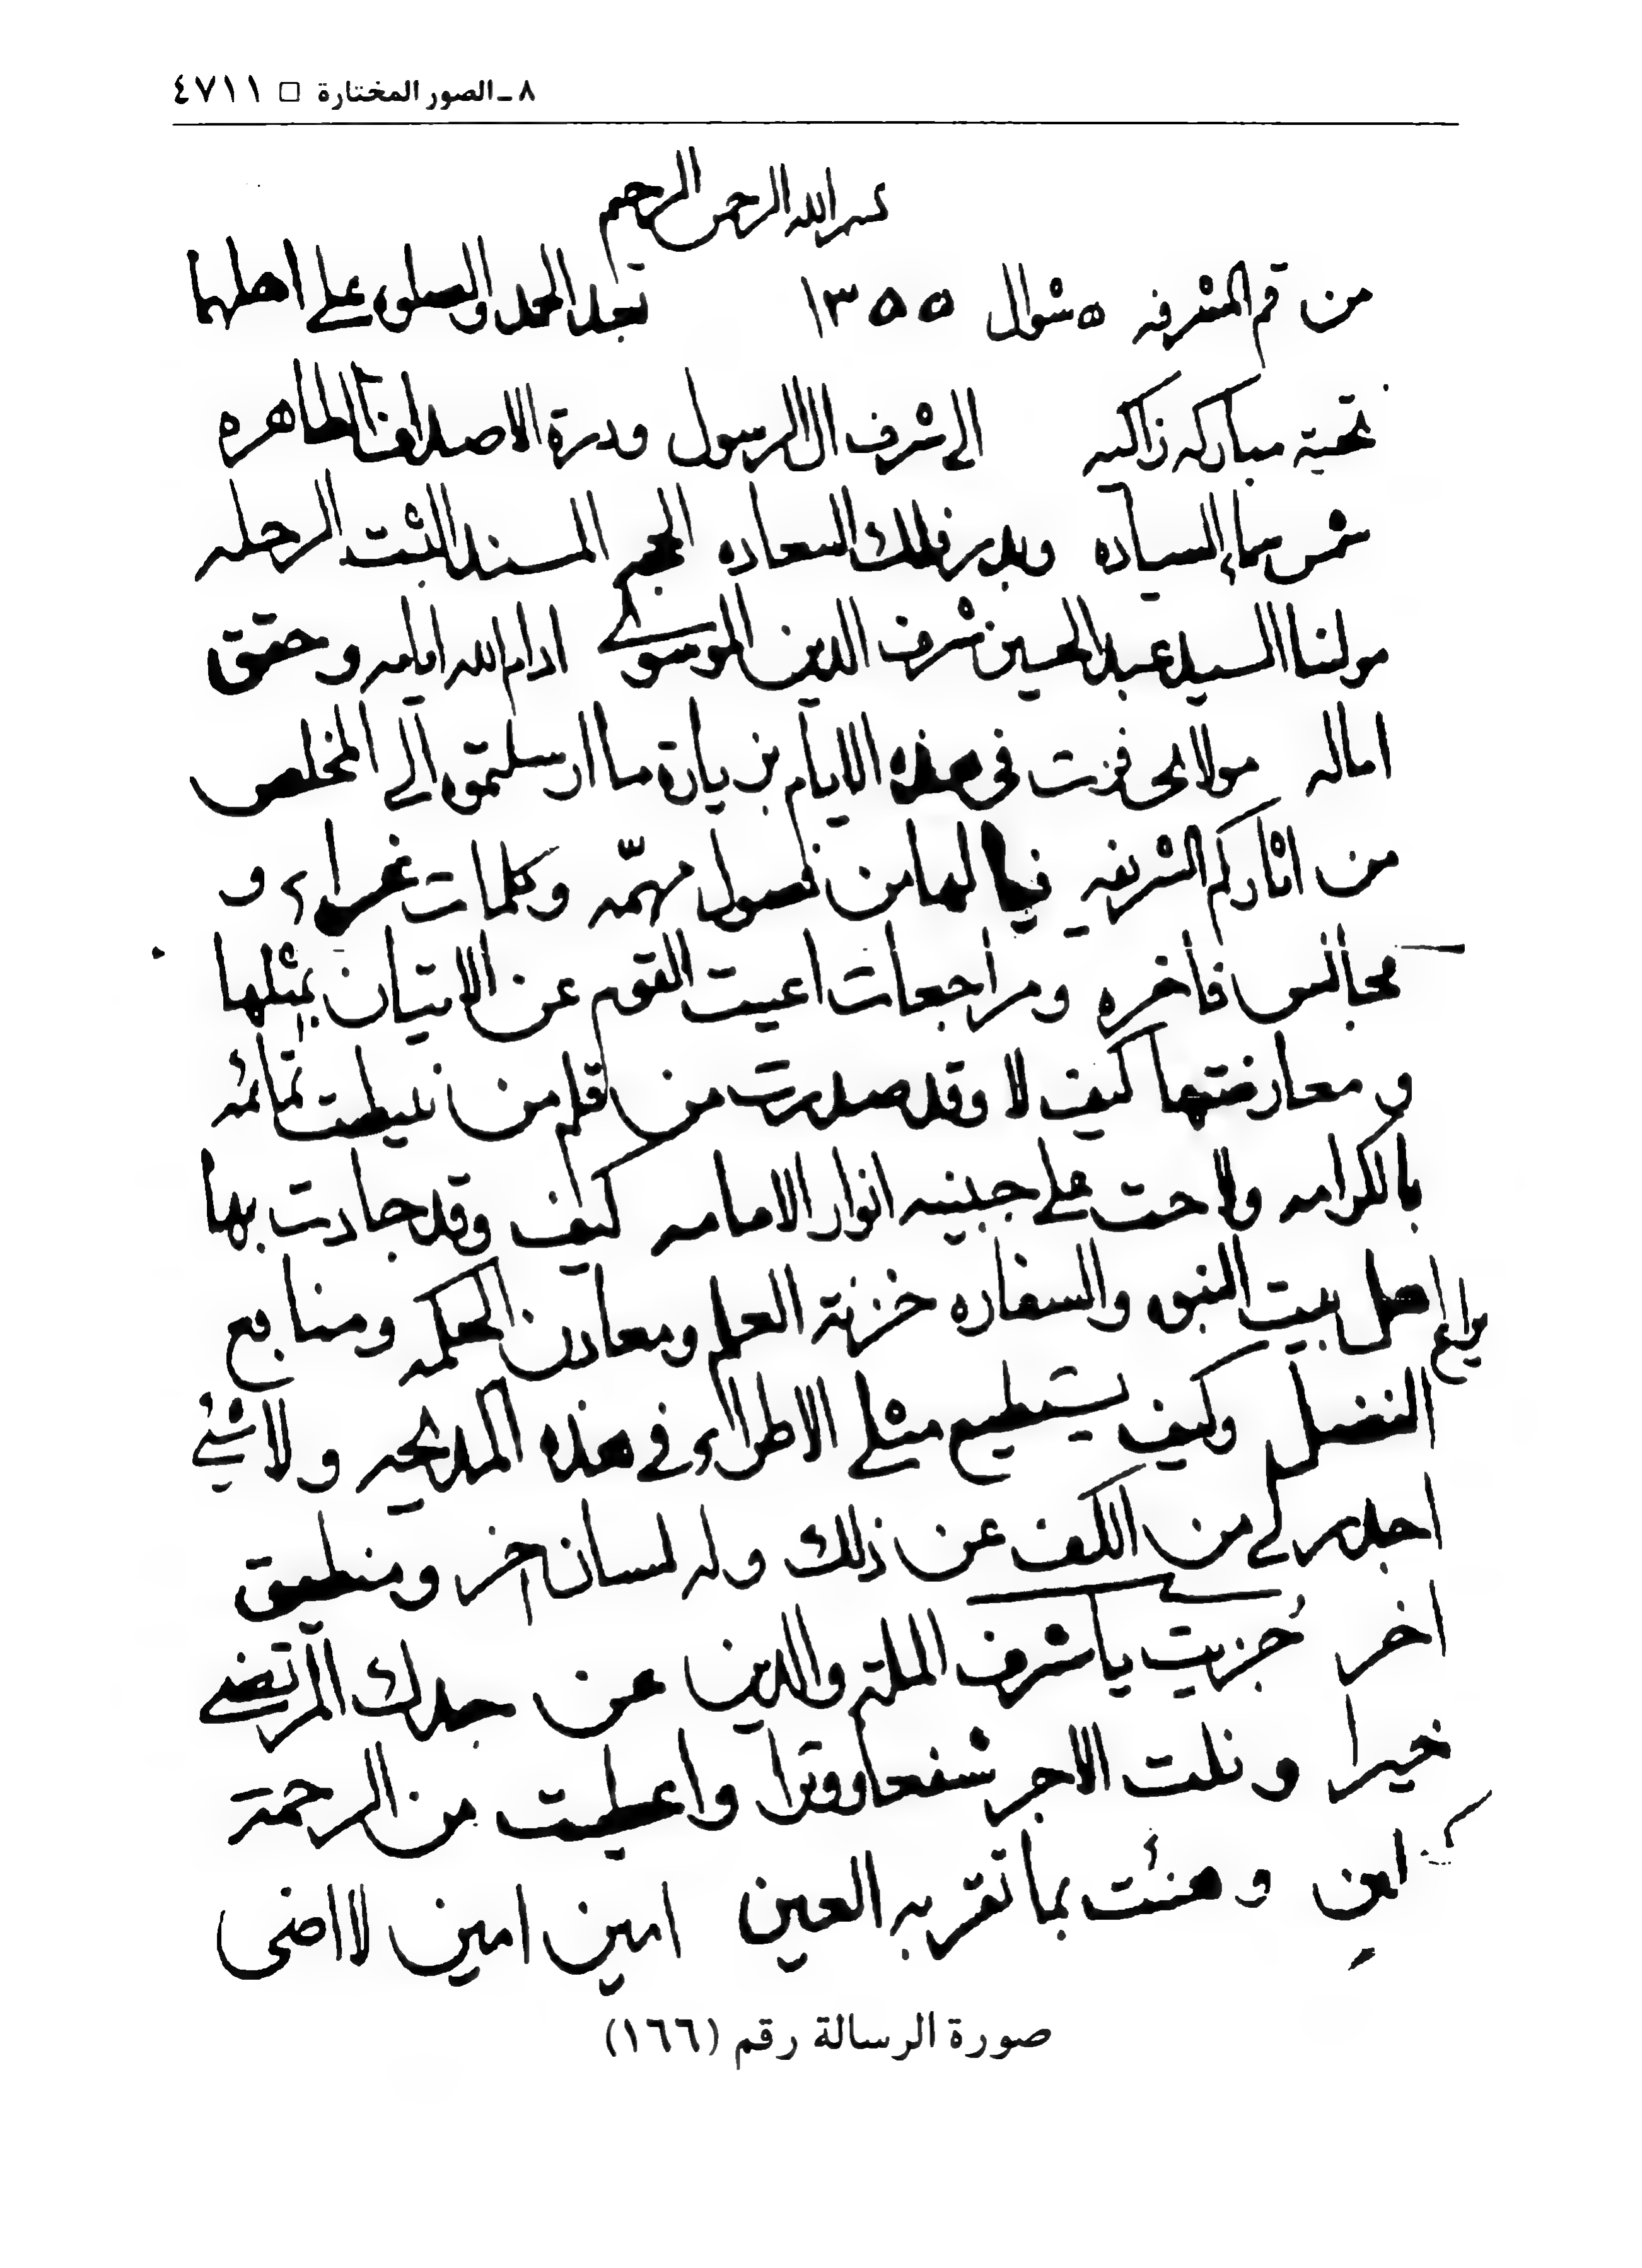 ٨ ـ الصور المختارة □ ٤٧١١
بسم الله الرحمن الرحيم
من قم المشرفه ٥ شوال ١٣٥٥ بعد الحمد والصلوة على اهلها
تحية مباركه زاكيه الى شرف ال الرسول ودرة الاصداف الطاهره
شمس سماء السياده وبدر فلك السعاده الحجة المسند الثبت الرحله
مولنا السيد عبد الحسين شرف الدين الموسوي ادام الله ايامه وحقق
اماله مولاى فزت فى هذه الايام بزيارة ما ارسلتموه الى المخلص
من اثاركم الشريفه فيا لها من فصول مهمّه وكلمات غراء و
مجالس فاخره ومراجعات اعيت القوم عن الاتيان بمثلها
و معارضتها كيف لا وقد صدرت من قلم من نيطت تمائمه
بالكرامه ولاحت على جبينه انوار الامامه كيف وقد جادت بها
يراع اهل بيت النبوه والسفاره خزنة العلم ومعادن الحكمه ومنابع
الفضل وكيف يستطيع مثلي الاطراء في هذه المديحه ولا شئ
اجدر لي من الكف عن ذلك وله لسان اخر ومنطيق
اخر جُزيت يا شرف الملة والدين عن جدك المرتضى
خيرا ونلت الاجر شفعا ووترا واعطيت من الرحمة
كفلين وهنئت بما تقر به العين امين امين لا ارضى
صورة الرسالة رقم (١٦٦)